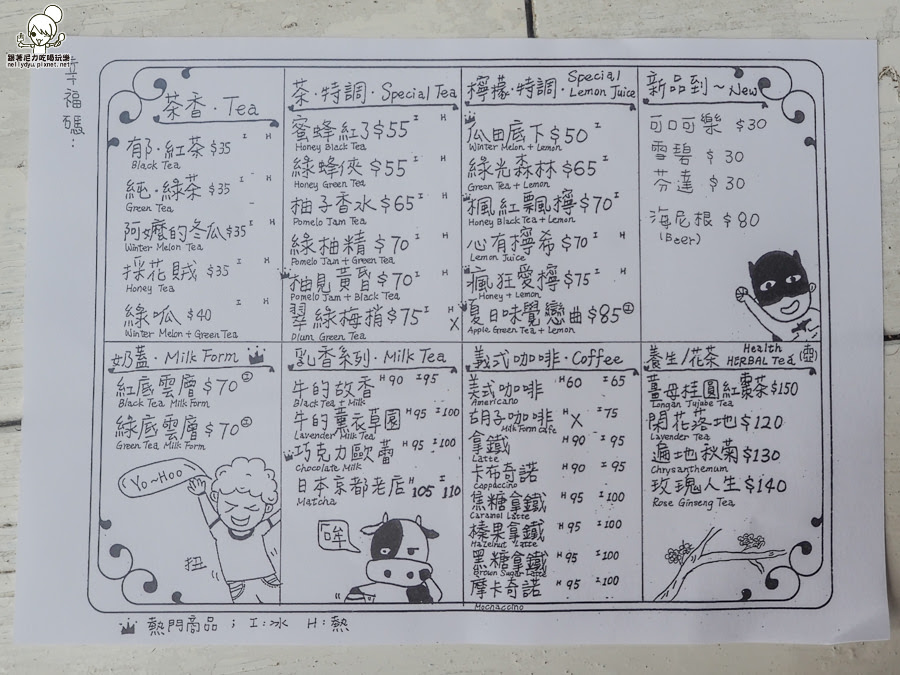 跟著尼力吃喝玩樂
nellydyu.pixnet.net
幸福碼：
茶香·Tea
郁·紅茶 $35 I H
Black Tea
純·綠茶 $35 I H
Green Tea
阿嬤的冬瓜 $35 I H
Winter Melon Tea
採花賊 $35 I H
Honey Tea
綠呱 $40 I H
Winter Melon + Green Tea
茶·特調·Special Tea
蜜蜂紅了 $55 I H
Honey Black Tea
綠蜂俠 $55 I H
Honey Green Tea
柚子香水 $65 I H
Pomelo Jam Tea
綠柚精 $70 I H
Pomelo Jam + Green Tea
柚見黃昏 $70 I H
Pomelo Jam + Black Tea
翠綠梅梢 $75 I H X
Plum Green Tea
檸檬·特調·Special Lemon Juice
瓜田底下 $50 I
Winter Melon + Lemon
綠光森林 $65 I
Green Tea + Lemon
楓紅飄檸 $70 I
Honey Black Tea + Lemon
心有擰希 $70 I H
Lemon Juice
瘋狂愛檸 $75 I H
Honey + Lemon
夏日味覺戀曲 $85 I
Apple Green Tea + Lemon
新品到~New
可口可樂 $30
雪碧 $30
芬達 $30
海尼根 $80
(Beer)
奶蓋·Milk Form
紅底雲層 $70 I
Black Tea Milk Form
綠底雲層 $70 I
Green Tea Milk Form
Yo~Hoo
扭
乳香系列·Milk Tea
牛的故香 H 90 I 95
Black Tea + Milk
牛的薰衣草園 H 95 I 100
Lavender Milk Tea
巧克力歐蕾 H 95 I 100
Chocolate Milk
日本京都老店 H 105 I 110
Matcha
哞
義式咖啡·Coffee
美式咖啡 H 60 I 65
Americano
胡子咖啡 H X I 75
Milk Form Cafe
拿鐵 H 90 I 95
Latte
卡布奇諾 H 90 I 95
Cappuccino
焦糖拿鐵 H 95 I 100
Caramel Latte
榛果拿鐵 H 95 I 100
Hazelnut Latte
黑糖拿鐵 H 95 I 100
Brown Sugar Latte
摩卡奇諾 H 95 I 100
Mochaccino
養生/花茶 Health HERBAL Tea (壺)
薑母桂圓紅棗茶 $150
Longan Jujube Tea
閑花落地 $120
Lavender Tea
遍地秋菊 $130
Chrysanthemum
玫瑰人生 $140
Rose Ginseng Tea
熱門商品；I：冰 H：熱